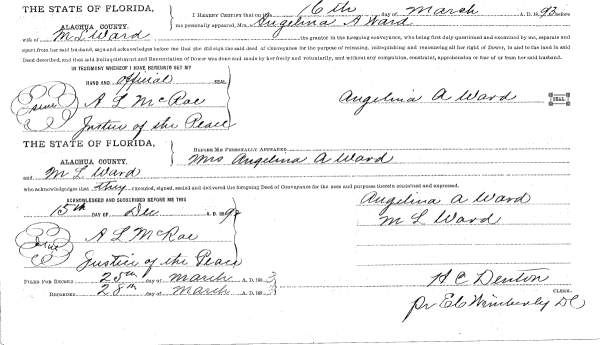 THE STATE OF FLORIDA,
ALACHUA COUNTY.
I HEREBY CERTIFY that on this 16th day of March A. D. 1892 before
me personally appeared, Mrs. Angelina A Ward
wife of M L Ward the grantor in the foregoing conveyance, who being first duly questioned and examined by me, separate and
apart from her said husband, says and acknowledges before me that she did sign the said deed of conveyance for the purpose of releasing, relinquishing and renouncing all her right of Dower, in and to the land in said
Deed described, and that said Relinquishment and Renunciation of Dower was done and made by her freely and voluntarily, and without any compulsion, constraint, apprehension or fear of or from her said husband.
IN TESTIMONY WHEREOF I HAVE HEREUNTO SET MY
HAND AND official SEAL
A L McRae
Justice of the Peace
Angelina A Ward SEAL
THE STATE OF FLORIDA,
ALACHUA COUNTY.
BEFORE ME PERSONALLY APPEARED
Mrs Angelina A Ward
and M L Ward
who acknowledges that they executed, signed, sealed and delivered the foregoing Deed of Conveyance for the uses and purposes therein contained and expressed.
ACKNOWLEDGED AND SUBSCRIBED BEFORE ME THIS
15th DAY OF Dec A. D. 1892
A L McRae
Justice of the Peace
Angelina A Ward
M L Ward
FILED FOR RECORD 25th day of March A. D. 1893
RECORDED 28th day of March A. D. 1893
H C Denton
CLERK.
Pr E C Wimberly DC